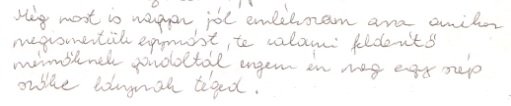 Még most is nagyon jól emlékszem arra amikor
megismertük egymást, te valami felderítő
mérnöknek gondoltál engem én meg egy szép
szőke lánynak téged.